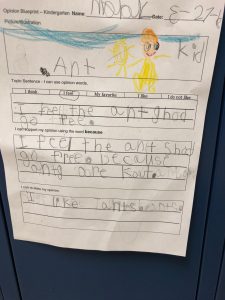 Opinion Blueprint – Kindergarten Name
Date:
Picture/Illustration
Ant
kid
Topic Sentence - I can use opinion words.
I think I feel My favorite I like I do not like
I feel the ant shod
go free.
I can support my opinion using the word because
I feel the ant shod
go free. because
antg are
my opinion.
I like ants